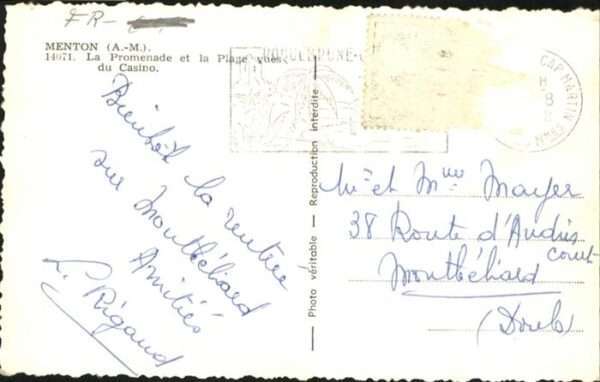 FR-
MENTON (A.-M.).
14671. La Promenade et la Plage vues
du Casino.
Bientôt la rentrée
sur Montbéliard
Amitiés
L. Rigaud
Photo véritable — Reproduction interdite
ROQUEBRUNE-
CAP MARTIN
Mr et Mme Mayer
38 Route d'Audin
court
Montbéliard
(Doubs)